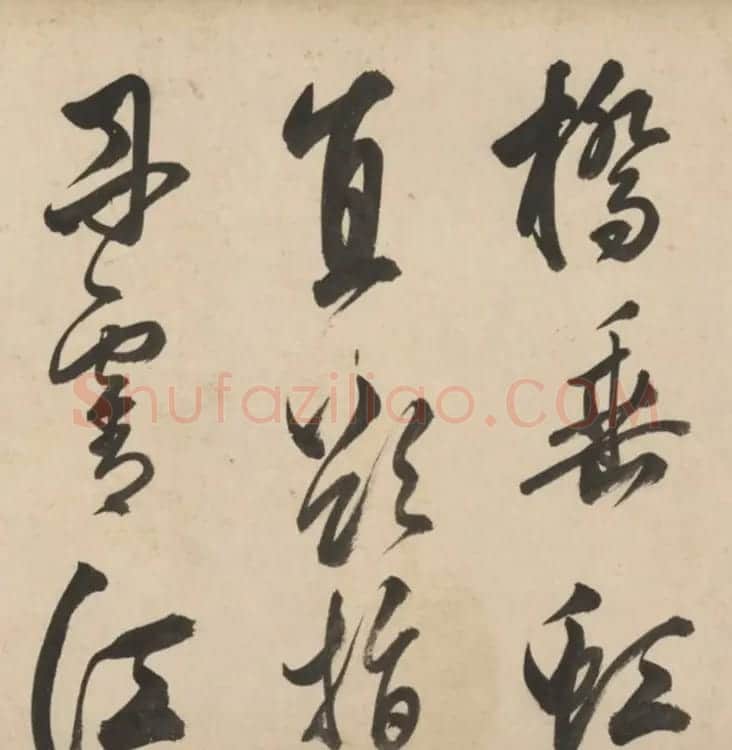 橋垂虹
直欲指
丹霄江
Shufaziliao.COM